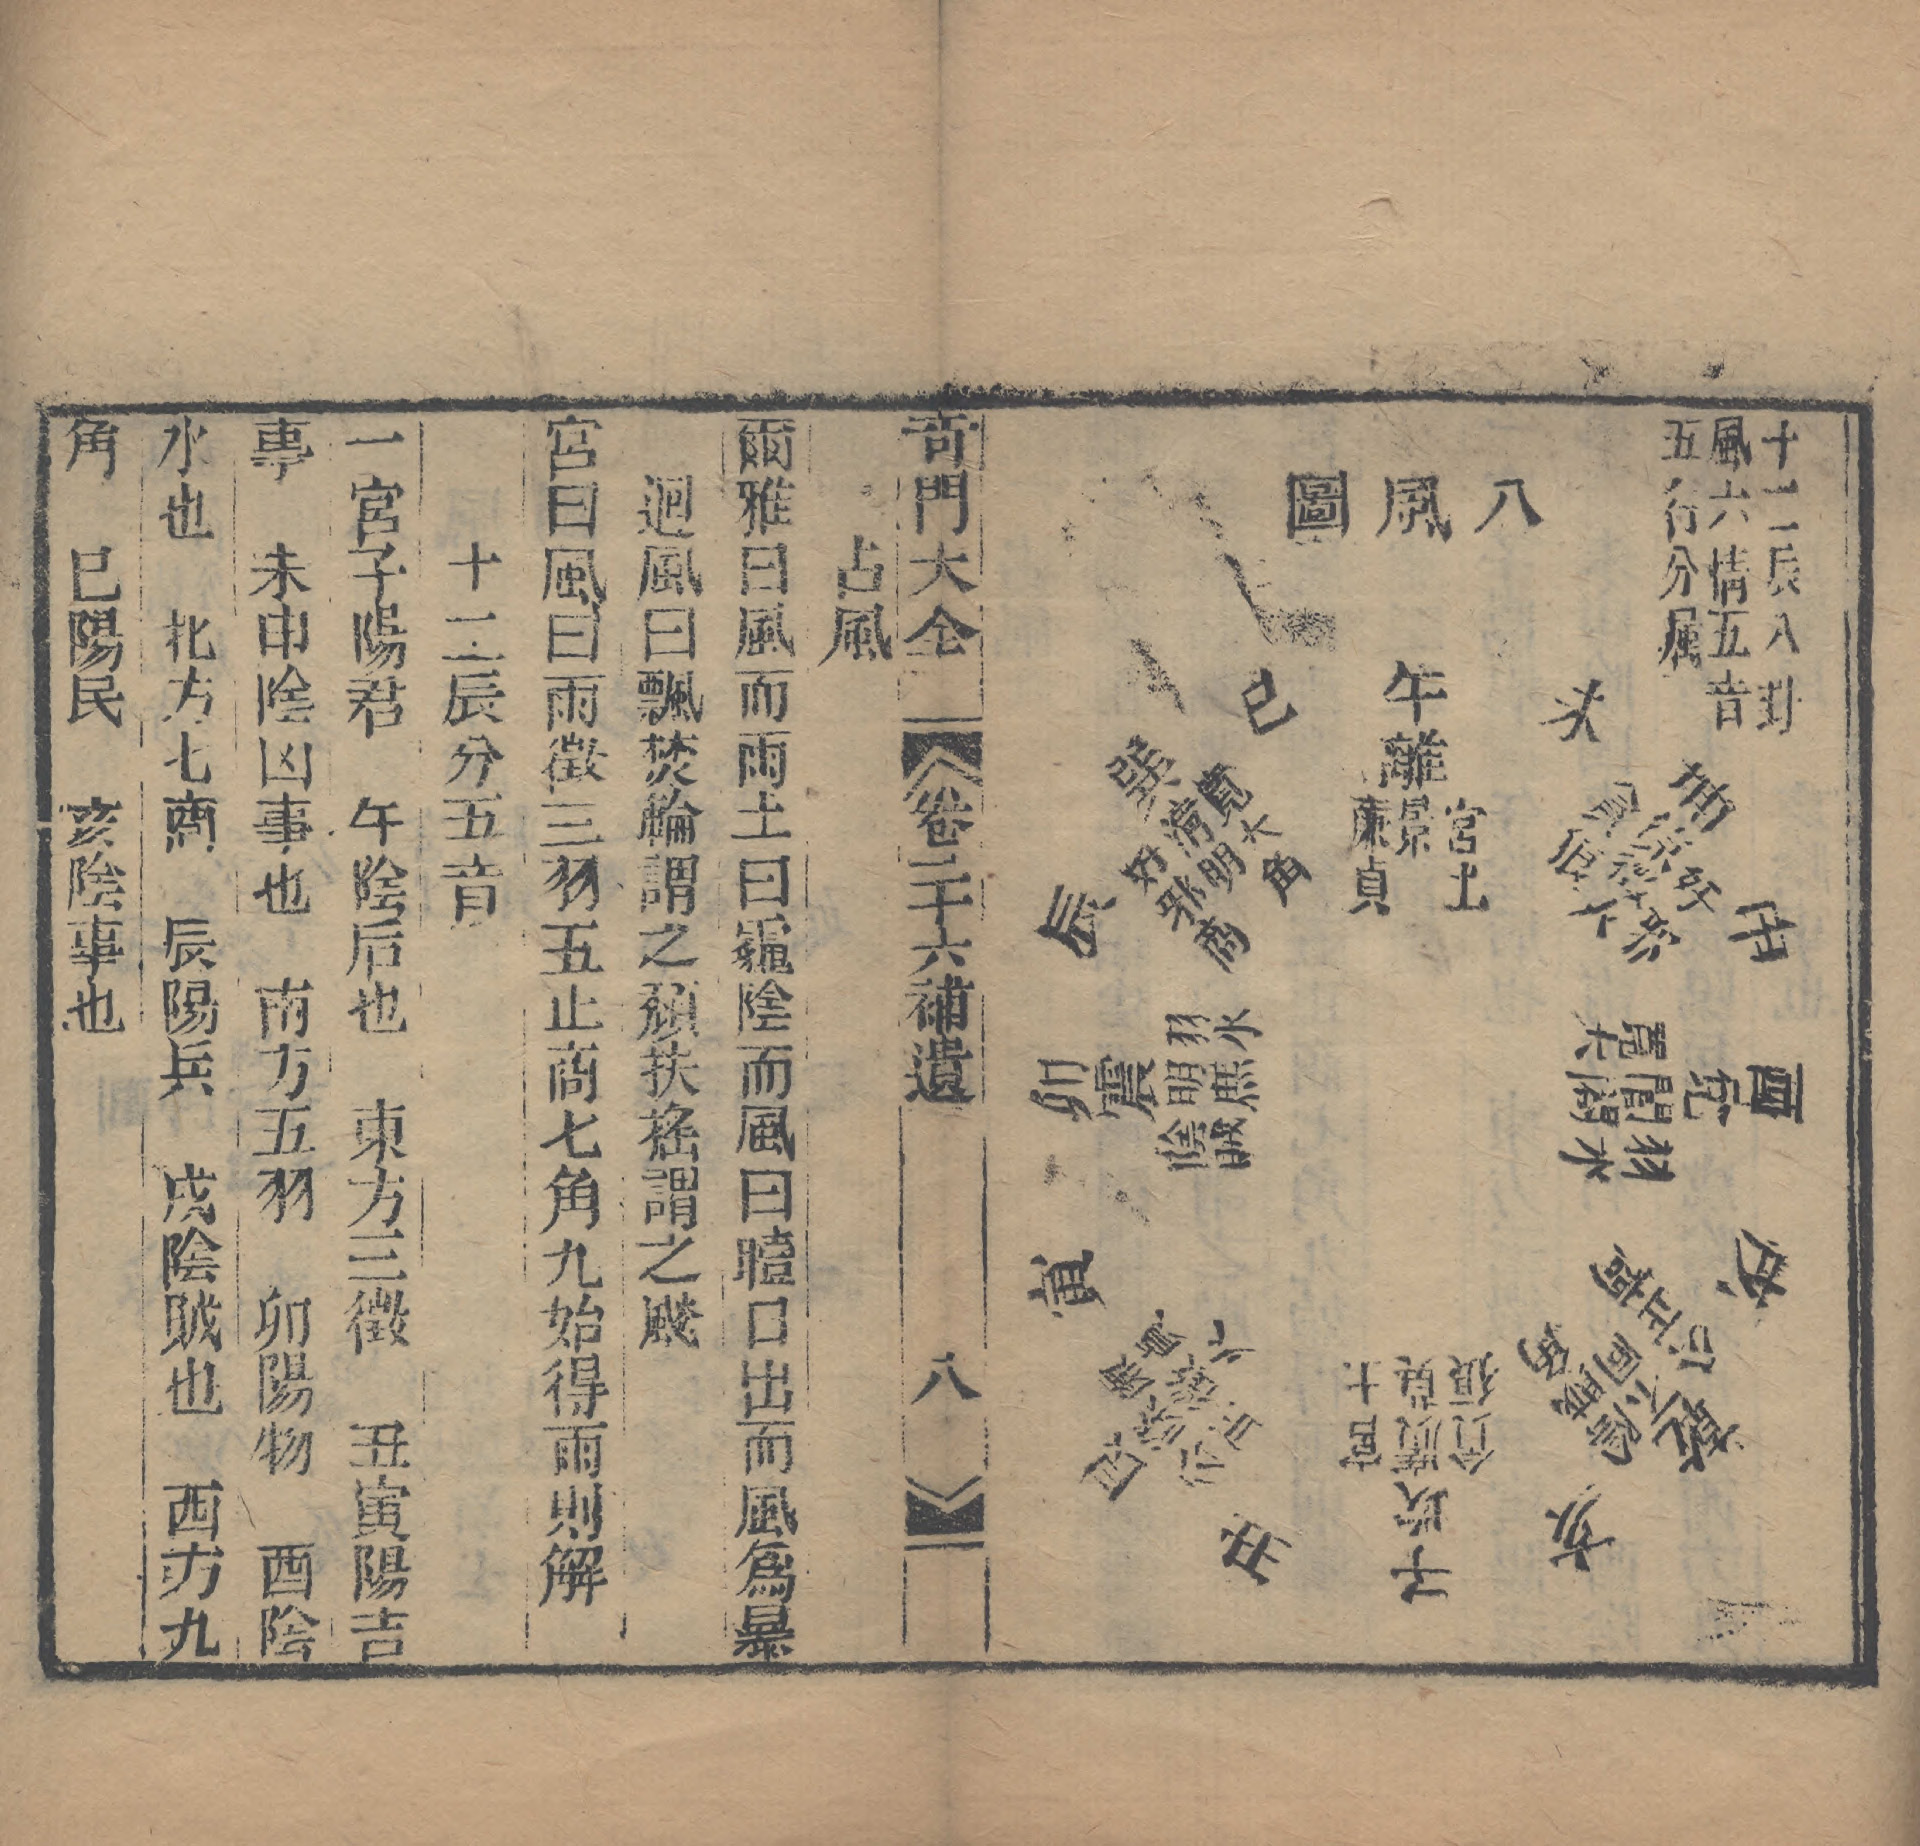 十二辰八卦
風六情五音
五行分属
八風圖
午離
景
宮土
廉貞
未
申
酉兌
閶闔
羽水
戌
亥
子坎
丑
寅
卯震
明
羽水
陰賊
辰
巽
清明
巳
奇門大全
卷二十六補遺
八
占風
爾雅曰風而雨土曰霾陰而風曰曀口出而風爲暴
迴風曰飄焚輪謂之頹扶搖謂之飇
宮曰風曰雨徵三羽五止商七角九始得雨則解
十二辰分五音
一宮子陽君 午陰后也 東方三徵 丑寅陽吉
事 未申陰凶事也 南方五羽 卯陽物 酉陰
水也 北方七商 辰陽兵 戌陰賊也 西方九
角 巳陽民 亥陰事也